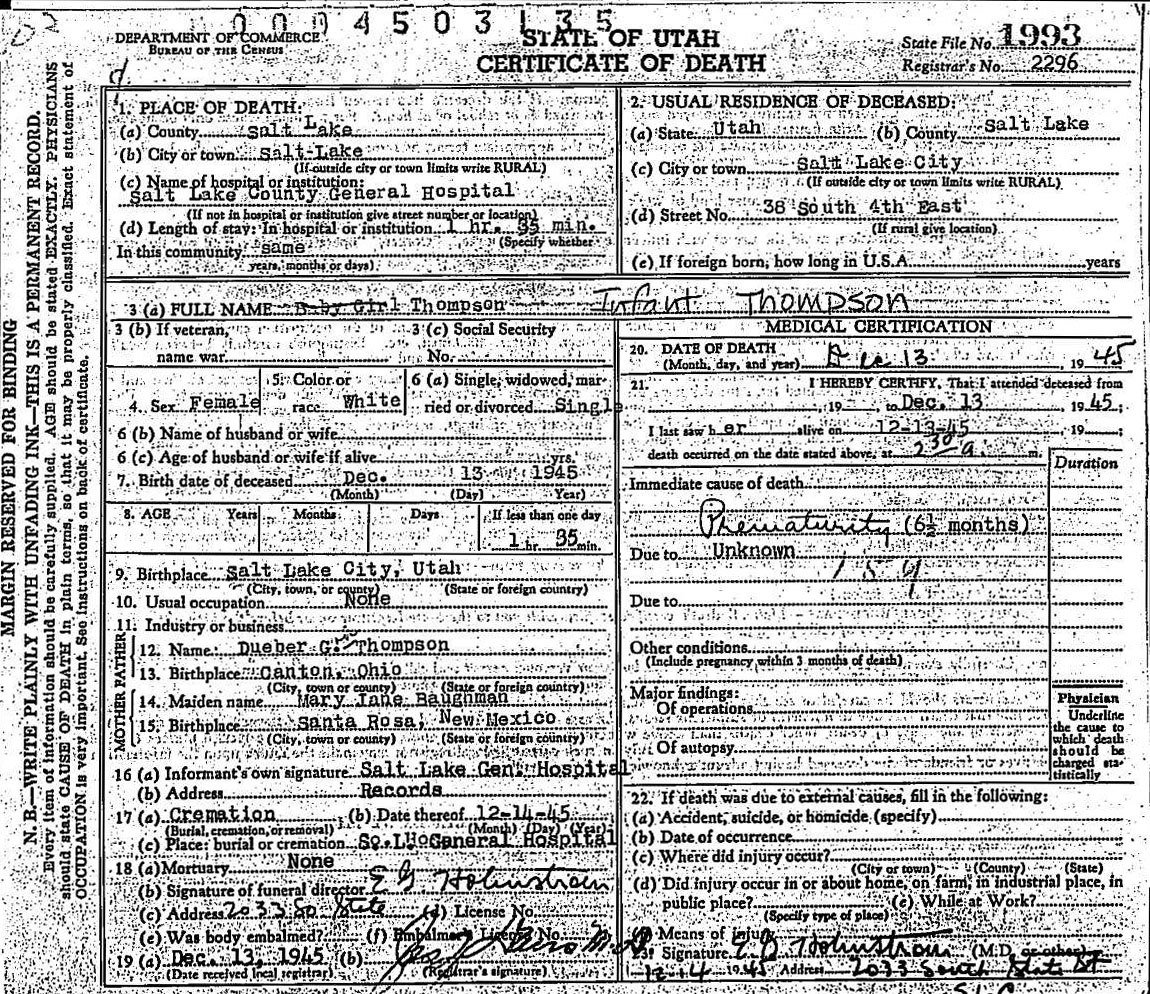 0004503135
DEPARTMENT OF COMMERCE
BUREAU OF THE CENSUS
STATE OF UTAH
CERTIFICATE OF DEATH
State File No. 1993
Registrar's No. 2296
MARGIN RESERVED FOR BINDING
N. B.—WRITE PLAINLY WITH UNFADING INK—THIS IS A PERMANENT RECORD.
Every item of information should be carefully supplied. AGE should be stated EXACTLY. PHYSICIANS
should state CAUSE OF DEATH in plain terms, so that it may be properly classified. Exact statement of
OCCUPATION is very important. See instructions on back of certificate.
1. PLACE OF DEATH:
(a) County Salt Lake
(b) City or town Salt Lake
(If outside city or town limits write RURAL)
(c) Name of hospital or institution:
Salt Lake County General Hospital
(If not in hospital or institution give street number or location)
(d) Length of stay: In hospital or institution 1 hr. 35 min.
(Specify whether
In this community same
years, months or days)
2. USUAL RESIDENCE OF DECEASED:
(a) State Utah (b) County Salt Lake
(c) City or town Salt Lake City
(If outside city or town limits write RURAL)
(d) Street No. 38 South 4th East
(If rural give location)
(e) If foreign born, how long in U.S.A. years
3 (a) FULL NAME Baby Girl Thompson Infant Thompson
3 (b) If veteran, 3 (c) Social Security
name war No.
4. Sex Female 5. Color or race White 6 (a) Single, widowed, married or divorced Single
6 (b) Name of husband or wife
6 (c) Age of husband or wife if alive yrs.
7. Birth date of deceased Dec. 13 1945
(Month) (Day) (Year)
8. AGE Years Months Days If less than one day
1 hr. 35 min.
9. Birthplace Salt Lake City, Utah
(City, town, or county) (State or foreign country)
10. Usual occupation None
11. Industry or business
FATHER
12. Name Dueber G. Thompson
13. Birthplace Canton, Ohio
(City, town or county) (State or foreign country)
MOTHER
14. Maiden name Mary Jane Baughman
15. Birthplace Santa Rosa, New Mexico
(City, town or county) (State or foreign country)
16 (a) Informant's own signature Salt Lake Gen. Hospital
(b) Address Records
17 (a) Cremation (b) Date thereof 12-14-45
(Burial, cremation, or removal) (Month) (Day) (Year)
(c) Place: burial or cremation General Hospital
18 (a) Mortuary None
(b) Signature of funeral director E G Holmstrom
(c) Address 2033 So State (d) License No.
(e) Was body embalmed? (f) Embalmer's License No.
19 (a) Dec. 13, 1945 (b)
(Date received local registrar) (Registrar's signature)
MEDICAL CERTIFICATION
20. DATE OF DEATH
(Month, day, and year) Dec 13 1945
21. I HEREBY CERTIFY, That I attended deceased from
, 19 , to Dec. 13 , 1945;
I last saw her alive on 12-13-45 , 19 ;
death occurred on the date stated above, at 2 30 a. m.
Duration
Immediate cause of death
Prematurity (6½ months)
Due to Unknown
159
Due to
Other conditions
(Include pregnancy within 3 months of death)
Major findings:
Of operations
Of autopsy
Physician
Underline
the cause to
which death
should be
charged sta-
tistically
22. If death was due to external causes, fill in the following:
(a) Accident, suicide, or homicide (specify)
(b) Date of occurrence
(c) Where did injury occur?
(City or town) (County) (State)
(d) Did injury occur in or about home, on farm, in industrial place, in
public place? (e) While at Work?
(Specify type of place)
Means of injury
23. Signature E G Holmstrom (M.D. or other)
12-14 1945 Address 2033 South State St